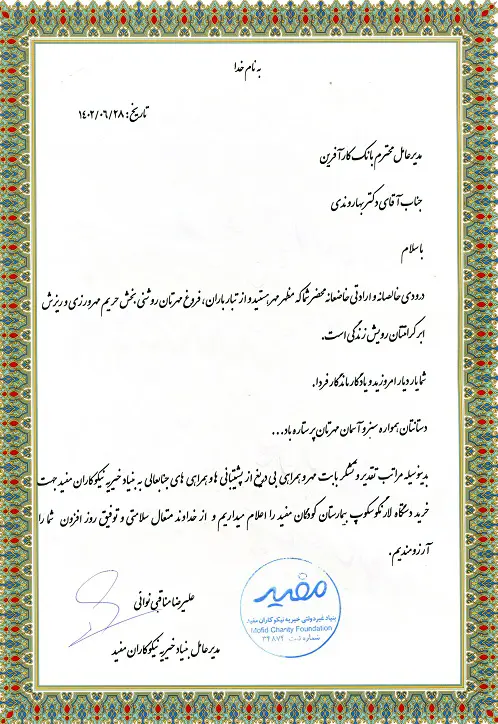 به نام خدا
تاریخ: ۱۴۰۲/۰۶/۲۸
مدیرعامل محترم بانک کارآفرین
جناب آقای دکتر بهاروندی
باسلام
درودی خالصانه و ارادتی خاضعانه محضر شما که مظهر مهر هستید و از تبار باران، فروغ مهرتان روشنی بخش حریم مهرورزی و ریزش
ابر کرامتتان رویش زندگی است.
شما یار دیار امروزید و یادگار ماندگار فردا.
دستانتان همواره سبز و آسمان مهرتان پرستاره باد...
بدینوسیله مراتب تقدیر و تشکر بابت مهر و همراهی بی دریغ از پشتیبانی ها و همراهی های جنابعالی به بنیاد خیریه نیکوکاران مفید جهت
خرید دستگاه لارنگوسکوپ بیمارستان کودکان مفید را اعلام میداریم و از خداوند متعال سلامتی و توفیق روز افزون شما را
آرزومندیم.
علیرضا مناقبی نوائی
مدیرعامل بنیاد خیریه نیکوکاران مفید
مفید
بنیاد غیردولتی خیریه نیکوکاران مفید
Mofid Charity Foundation
شماره ثبت ۳۴۸۷۴